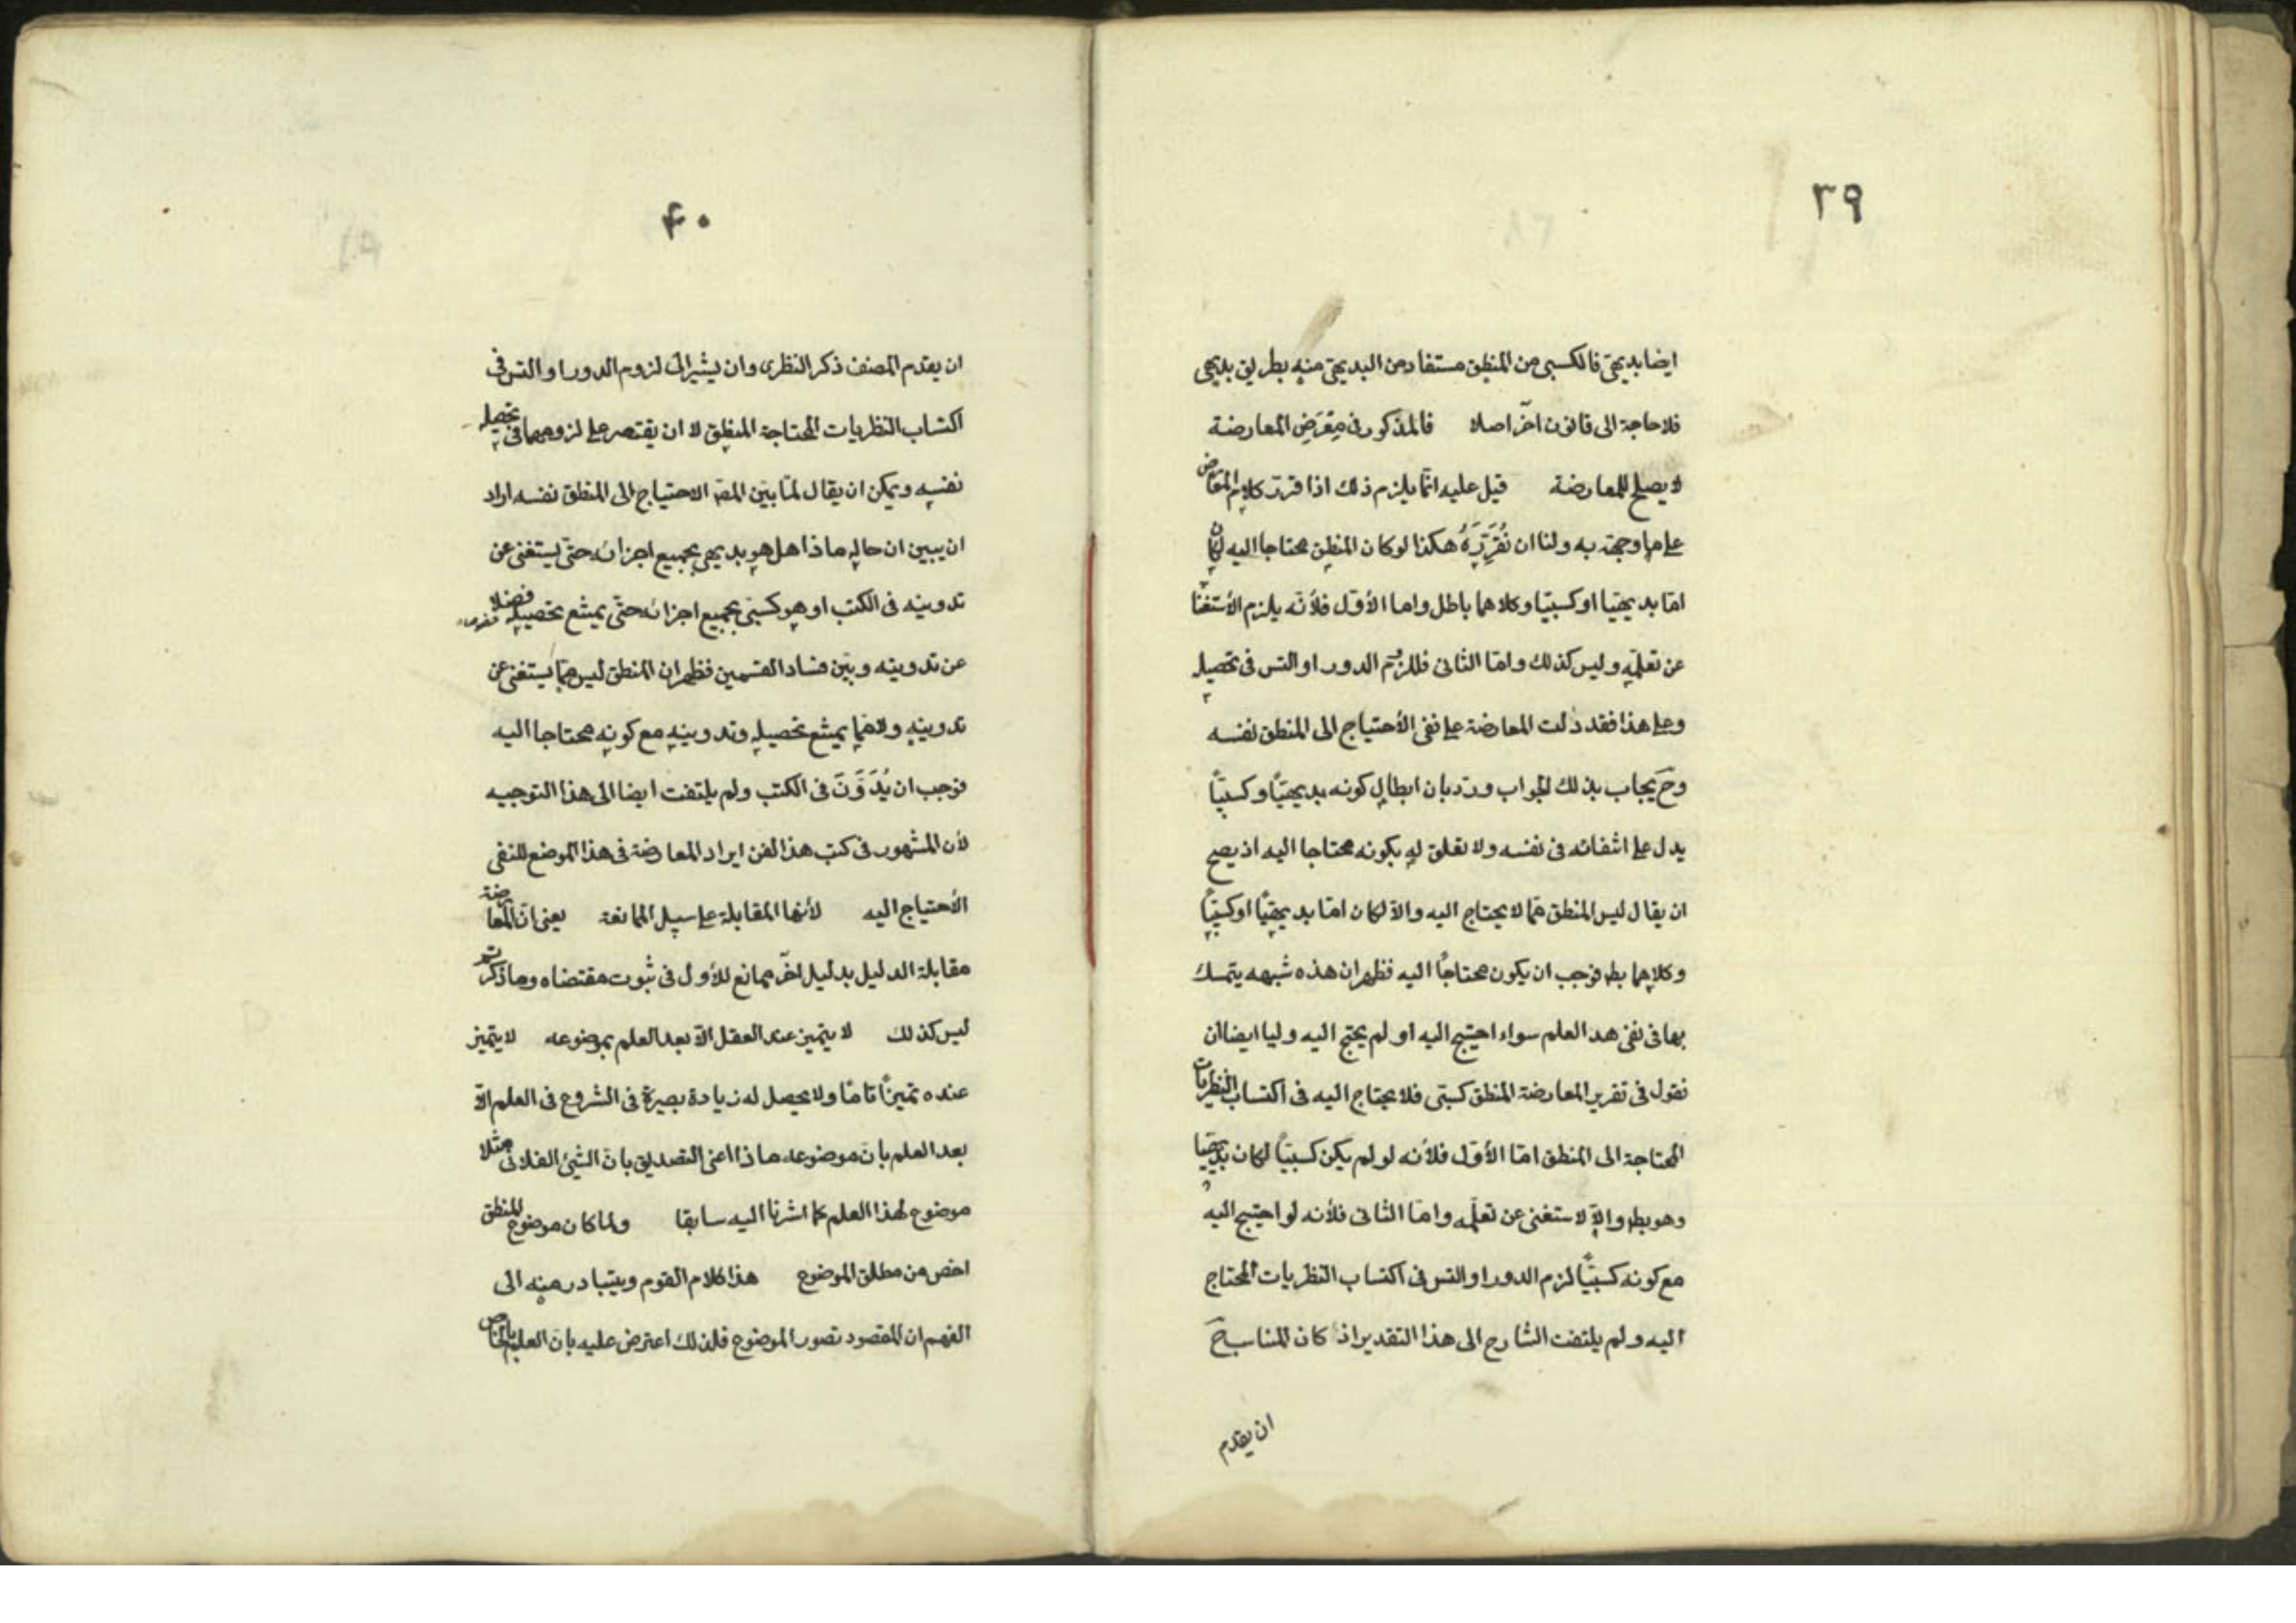 ٣٩
ايضا بديهى فالكسبى من المنطق مستفاد من البديهى منه بطريق بديهى
فلا حاجة الى قانون اخر اصلا فالمذكور فى مَعْرَضِ المعارضة
لا يصلح للمعارضة قيل عليه انما يلزم ذلك اذا قرر كلام المعارض
على ما وجهته به ولنا ان نُقَرِّرَهُ هكذا لو كان المنطق محتاجا اليه لكان
امّا بديهيّا او كسبيّا وكلاهما باطل واما الأوّل فلأنّه يلزم الأستغنا
عن تعلّمه وليس كذلك وامّا الثانى فللزوم الدور او التس فى تحصيله
وعلى هذا فقد دلت المعارضة على نفى الأحتياج الى المنطق نفسه
وحَ يجاب بذلك الجواب وردّ بان ابطال كونه بديهيّاً وكسبيّاً
يدل على انتفائه فى نفسه ولا تعلق له بكونه محتاجا اليه اذ يصح
ان يقال ليس المنطق ممّا لا يحتاج اليه والاّ لكان امّا بديهيّاً او كسبيّاً
وكلاهما بط فوجب ان يكون محتاجًا اليه فظهر ان هذه شبهه يتمسك
بها فى نفى هذ العلم سواء احتيج اليه او لم يحتج اليه ولنا ايضا ان
نقول فى تقرير المعارضة المنطق كسبّى فلا يحتاج اليه فى اكتساب النظريات
المحتاجة الى المنطق امّا الأوّل فلأنه لو لم يكن كسبيّاً لكان بديهيّا
وهو بط والاّ لاستغنى عن تعلّمه وامّا الثانى فلأنه لو احتيج اليه
مع كونه كسبيّاً لزم الدور او التس فى اكتساب النظريات المحتاج
اليه ولم يلتفت الشارح الى هذا التقدير اذ كان المناسب حَ
ان يقدم
۴۰
ان يقدم المصنف ذكر النظرى وان يشير الى لزوم الدور او التس فى
اكتساب النظريات المحتاجة المنطق لا ان يقتصر على لزومهما فى تحصيله
نفسه ويمكن ان يقال لمّا بيّن المصّ الاحتياج الى المنطق نفسه اراد
ان يبين ان حاله ماذا هل هو بديهى بجميع اجزائه حتّى يستغنى عن
تدوينه فى الكتب او هو كسبّى بجميع اجزائه حتّى يمتنع تحصيله فضلا
عن تدوينه وبيّن فساد القسمين فظهر ان المنطق ليس ممّا يستغنى عن
تدوينه ولا ممّا يمتنع تحصيله وتدوينه مع كونه محتاجا اليه
فوجب ان يُدَوَّنَ فى الكتب ولم يلتفت ايضا الى هذا التوجيه
لأن المشهور فى كتب هذا الفن ايراد المعارضة فى هذا الموضع للنفى
الأحتياج اليه لأنها المقابلة على سبيل الممانعة يعنى انّ المعارضة
مقابلة الدليل بدليل اخر ممانع للأول فى ثبوت مقتضاه وما ذكرتم
ليس كذلك لا يتميز عند العقل الاّ بعد العلم بموضوعه لا يتميّز
عنده تميزًا تامًا ولا يحصل له زيادة بصيرة فى الشروع فى العلم الاّ
بعد العلم بانّ موضوعه ماذا اعنى التصديق بانّ الشئ الفلانى مثلا
موضوع لهذا العلم كما اشرنا اليه سابقا ولما كان موضوع المنطق
اخص من مطلق الموضوع هذا كلام القوم ويتبادر منه الى
الفهم ان المقصود تصور الموضوع فلذلك اعترض عليه بانّ العلم بالخاص